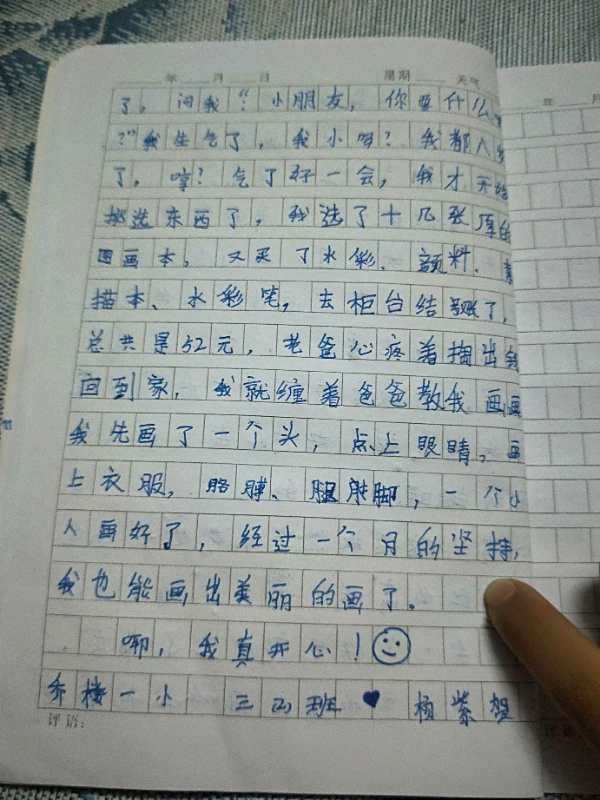 年 月 日 星期 天气
年 月
了，问我"？小朋友，你要什么
？"我生气了，我小吗？我都八岁
了，哼？气了好一会，我才开始
挑选东西了，我选了十几张厚的
图画本，又买了水彩、颜料、素
描本、水彩笔，去柜台结账了，
总共是52元，老爸心疼着掏出钱
回到家，我就缠着爸爸教我画画
我先画了一个头，点上眼睛，画
上衣服，胳膊、腿脚，一个小
人画好了，经过一个月的坚持，
我也能画出美丽的画了。
啊，我真开心！
乔楼一小 三(4)班 杨紫
评语：
评语